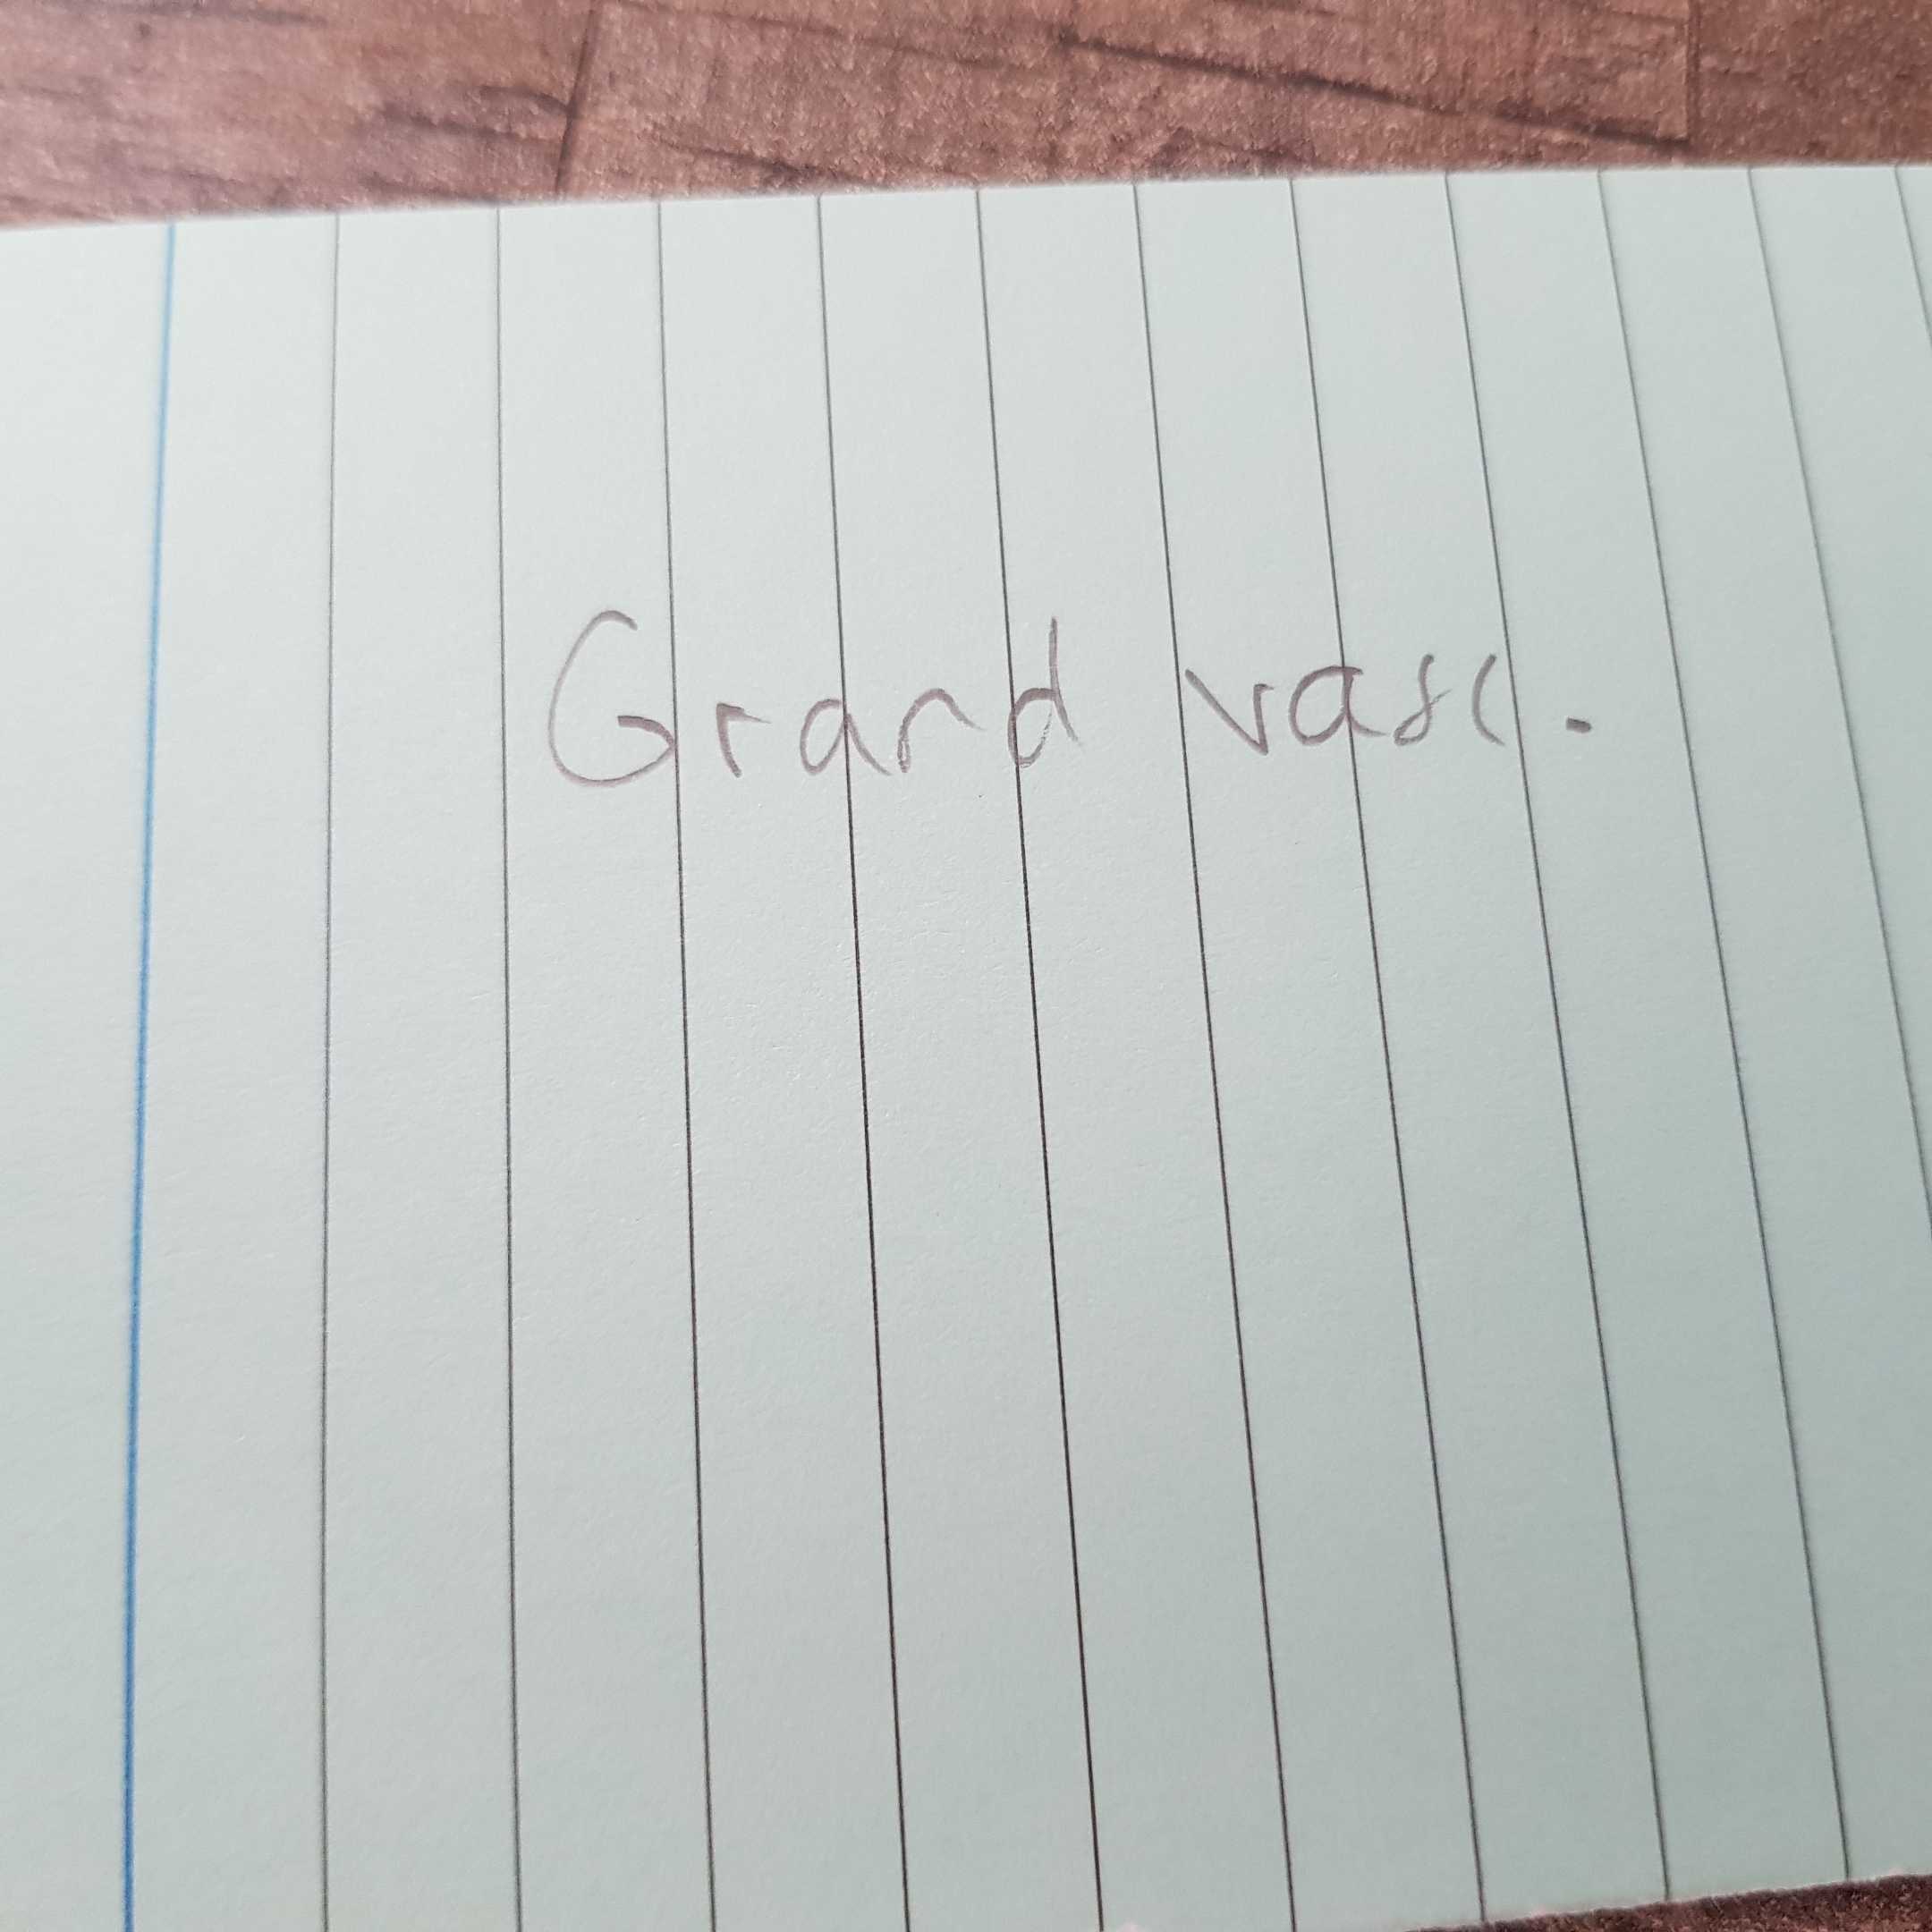 Grand vase.